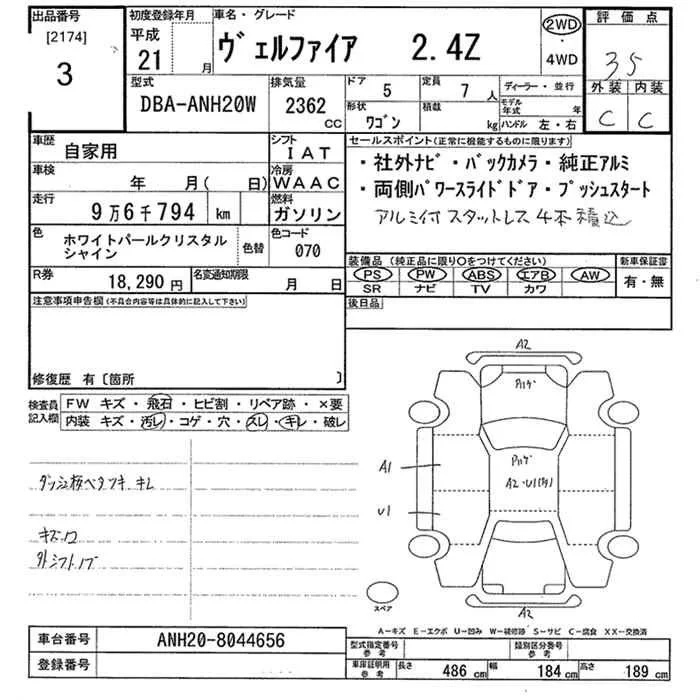 出品番号
[2174]
3
初度登録年月
平成
21 月
車名・グレード
ヴェルファイア 2.4Z
2WD
・
4WD
評価点
3.5
外装 内装
C C
型式
DBA-ANH20W
排気量
2362
CC
ドア
5
定員
7 人
形状
ワゴン
積載
kg
ディーラー・並行
モデル年式 年
ハンドル 左・右
車歴
自家用
シフト
IAT
車検
年 月( 日)
冷房
WAAC
走行
9万6千794 km
燃料
ガソリン
色
ホワイトパールクリスタル
シャイン
色替
色コード
070
R券
18,290 円
名変通知期限
月 日
セールスポイント(正常に機能するものに限ります)
・社外ナビ・バックカメラ・純正アルミ
・両側パワースライドドア・プッシュスタート
アルミ付スタットレス 4本積込
装備品 (純正品に限り○をつけてください)
PS PW ABS エアB AW
SR ナビ TV カワ
新車保証書
有・無
後日品
注意事項申告欄(不具合内容等は具体的に記入して下さい)
修復歴 有〔箇所 〕
検査員
記入欄
FW キズ・飛石・ヒビ割・リペア跡・×要
内装 キズ・汚レ・コゲ・穴・スレ・キレ・破レ
キズ
A2
A1
U1
A2
スペア
A−キズ E−エクボ U−凹み W−補修跡 S−サビ C−腐食 XX−交換済
車台番号
ANH20-8044656
登録番号
型式指定番号
参考
類別区分番号
参考
車庫証明用
参考
長さ 486 cm 幅 184 cm 高さ 189 cm